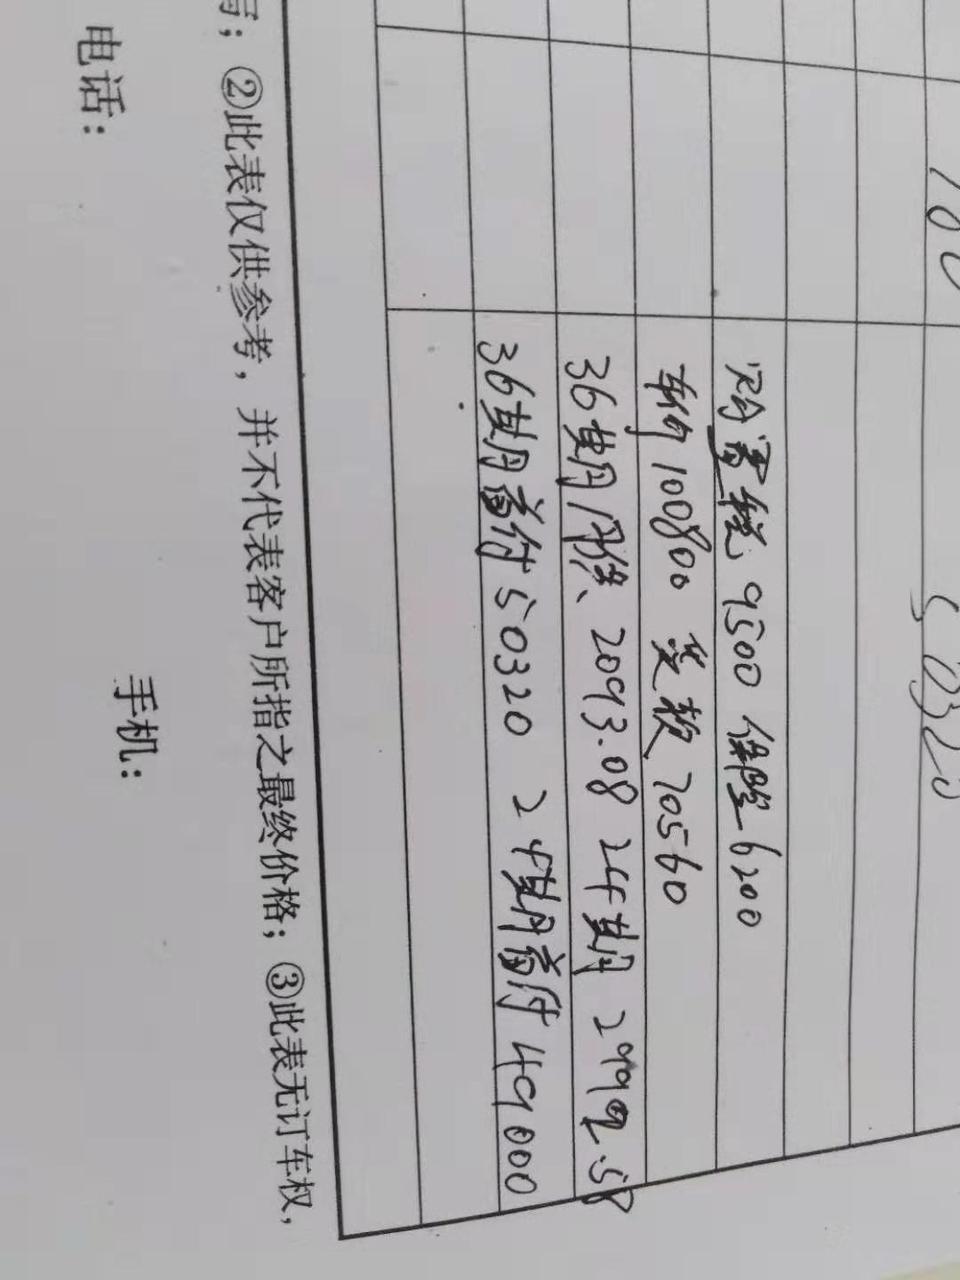 100
50320
购置税 9500 保险 6200
车价 100800 贷款 70560
36期月供、2093.08 24期 2992.58
36期首付 50320 24期首付 49000
②此表仅供参考，并不代表客户所指之最终价格；③此表无订车权，
电话： 手机：